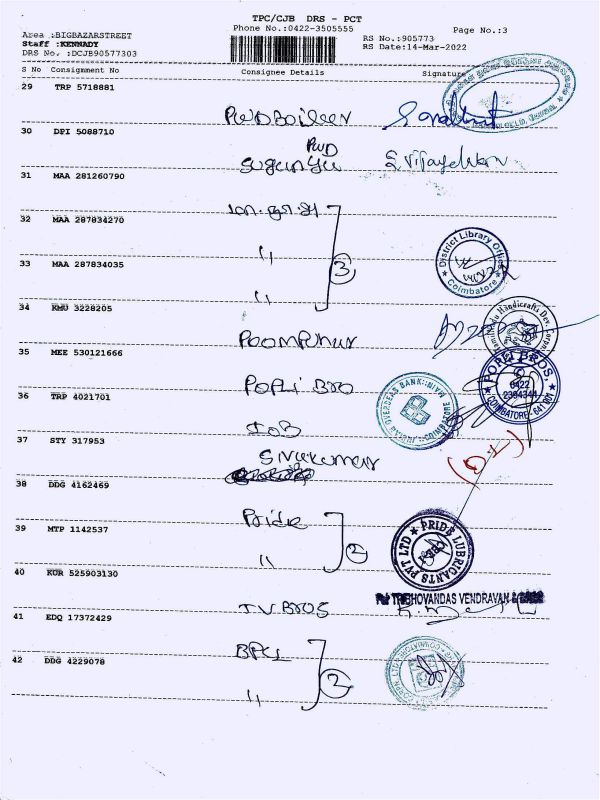 TPC/CJB DRS - PCT
Phone No.:0422-3505555
Page No.:3
Area :BIGBAZARSTREET
Staff :KENNADY
DRS No. :DCJB90577303
RS No.:905773
RS Date:14-Mar-2022
S No Consignment No Consignee Details Signature
29 TRP 5718881
PWD Boiler
30 DPI 5088710
PWD
31 MAA 281260790
32 MAA 287834270
〃
33 MAA 287834035
〃
3
District Library Officer
Coimbatore
34 KMU 3228205
Poompuhar
35 MEE 530121666
POPLI BRO
POPLI BROS
0422
2394344
COIMBATORE - 641 001
36 TRP 4021701
IOB
OVERSEAS BANK::MAIN
COIMBATORE
37 STY 317953
Sivakumar
38 DDG 4162469
Pride
39 MTP 1142537
〃
2
PRIDE LUBRICANTS PVT LTD
CBE
40 KUR 525903130
T.V.BROS
For TRIBHOVANDAS VENDRAVAN & BROS
41 EDQ 17372429
BPCL
42 DDG 4229078
〃
2